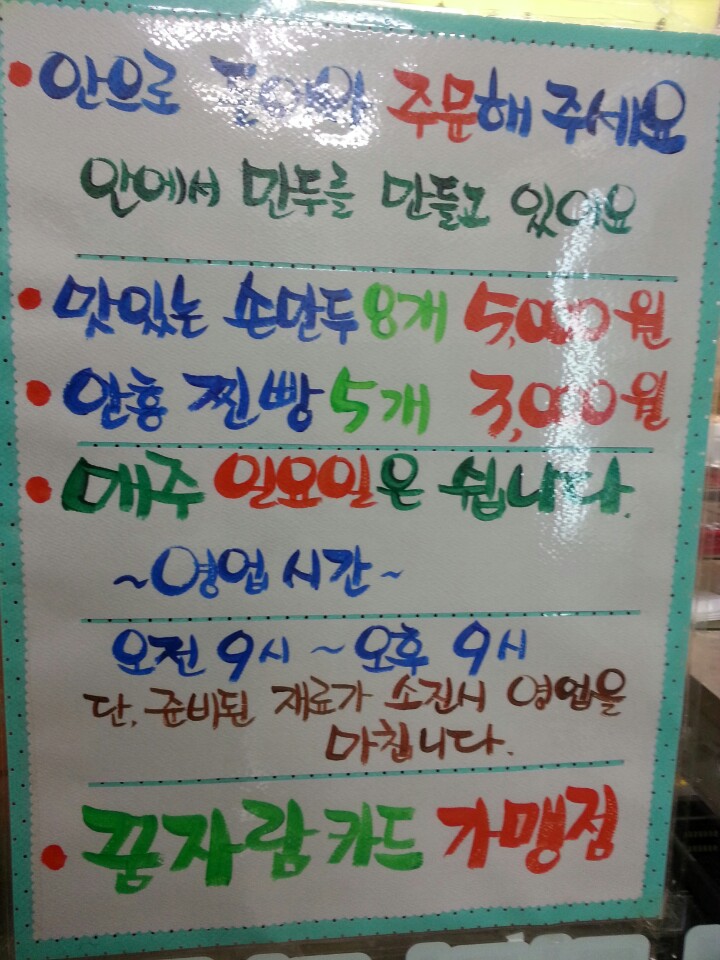 • 안으로 들어와 주문해 주세요
안에서 만두를 만들고 있어요
• 맛있는 손만두 8개 5,000원
• 안흥 찐빵 5개 3,000원
• 매주 일요일은 쉽니다.
~영업시간~
오전 9시 ~ 오후 9시
단, 준비된 재료가 소진시 영업을
마칩니다.
• 꿈자람카드 가맹점